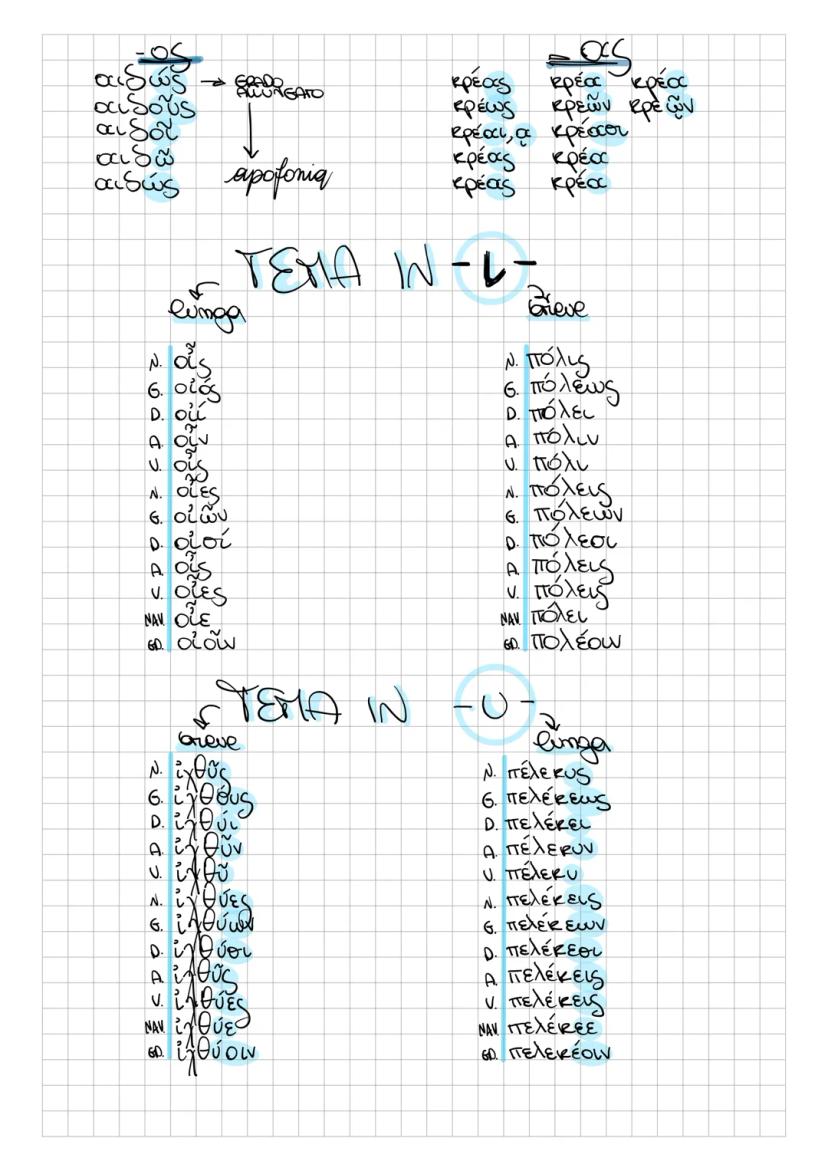 -ος
αιδώς → GRADO ALLUNGATO
αιδοῦς
αιδοῖ
αιδῶ
αιδώς
apofonia
- ας
κρέας κρέα κρέα
κρέως κρεῶν κρεῷν
κρέαι, ᾳ κρέασι
κρέας κρέα
κρέας κρέα
TEMA IN -ι-
lunga
N. οἶς
G. οἰός
D. οἰί
A. οἶν
V. οἶς
N. οἶες
G. οἰῶν
D. οἰσί
A. οἶς
V. οἶες
NAV. οἶε
GD. οἰοῖν
breve
N. πόλις
G. πόλεως
D. πόλει
A. πόλιν
V. πόλι
N. πόλεις
G. πόλεων
D. πόλεσι
A. πόλεις
V. πόλεις
NAV. πόλει
GD. πολέοιν
TEMA IN -υ-
breve
N. ἰχθῦς
G. ἰχθύυς
D. ἰχθύι
A. ἰχθῦν
V. ἰχθῦ
N. ἰχθύες
G. ἰχθύων
D. ἰχθύσι
A. ἰχθῦς
V. ἰχθύες
NAV. ἰχθύε
GD. ἰχθύοιν
lunga
N. πέλεκυς
G. πελέκεως
D. πελέκει
A. πέλεκυν
V. πέλεκυ
N. πελέκεις
G. πελέκεων
D. πελέκεσι
A. πελέκεις
V. πελέκεις
NAV. πελέκεε
GD. πελεκέοιν